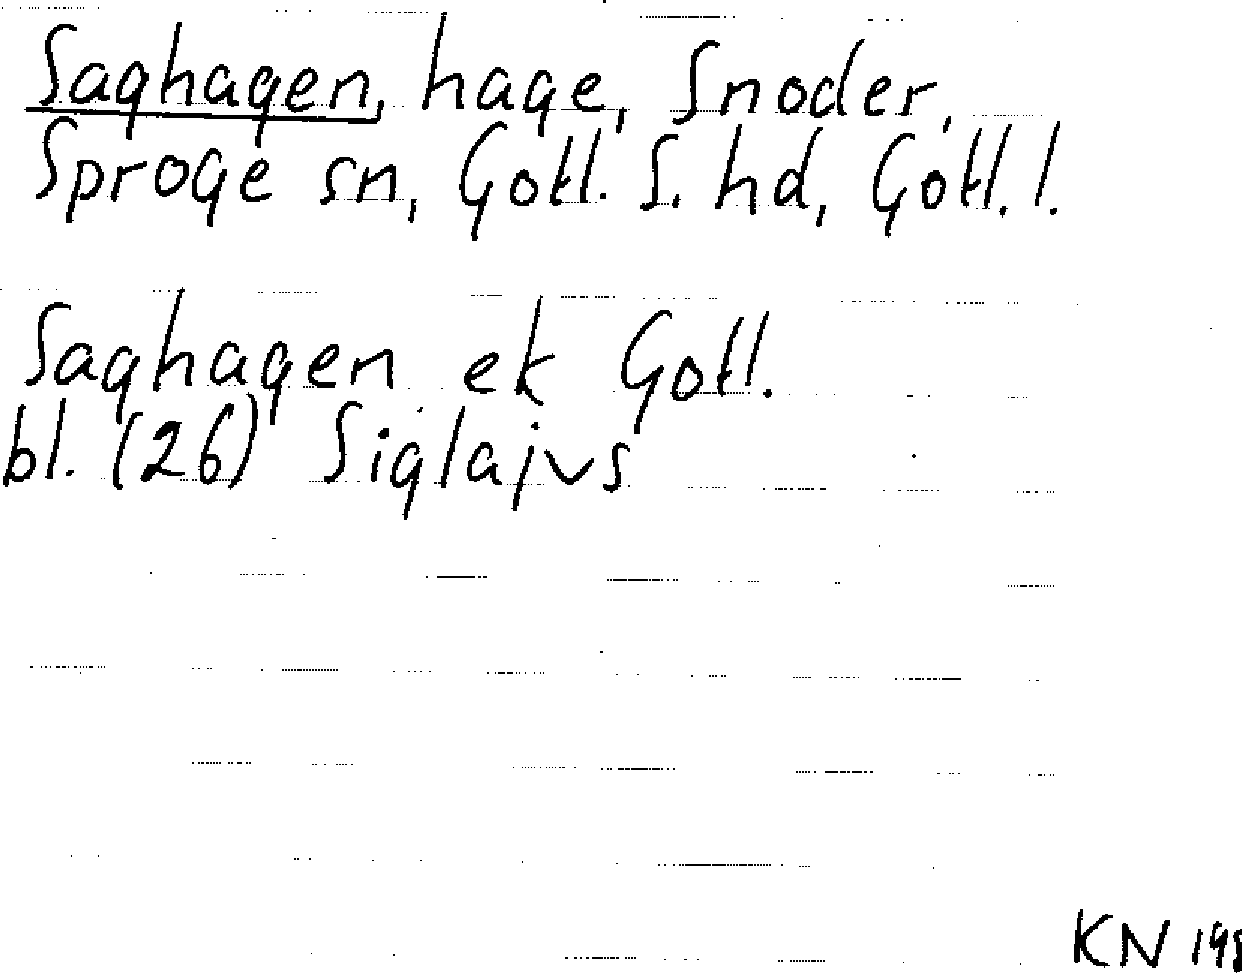 Saghagen, hage, Snoder,
Sproge sn, Gotl. S. hd, Gotl. l.
Saghagen ek Gotl.
bl. (26) Siglajvs
KN 198